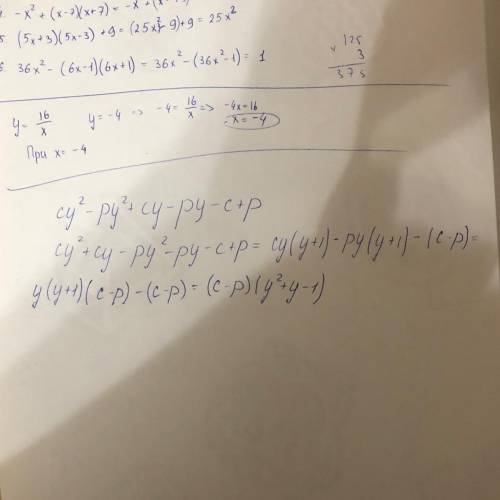 4. -x² + (x-7)(x+7) = -x² + (x²
5. (5x+3)(5x-3) + 9 = (25x²-9)+9 = 25x²
6. 36x² - (6x-1)(6x+1) = 36x² - (36x²-1) = 1
125
3
375
y = 16/x y = -4 => -4 = 16/x => -4x=16
x = -4
При x = -4
cy² - py² + cy - py - c + p
cy² + cy - py² - py - c + p = cy(y+1) - py(y+1) - (c-p) =
y(y+1)(c-p) - (c-p) = (c-p)(y²+y-1)